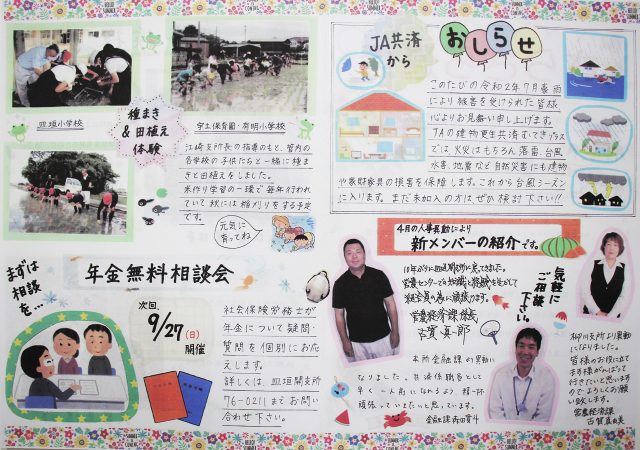 皿垣小学校
種まき
&田植え
体験
宇土保育園・有明小学校
江崎支所長の指導のもと、管内の
各学校の子供たちと一緒に種ま
きと田植えをしました。
米作り学習の一環で毎年行われ
ていて秋には稲刈りをする予定
です。
元気に
育ってね
JA共済
から
おしらせ
このたびの令和2年7月豪雨
により被害を受けられた皆様
に心よりお見舞い申し上げます。
JAの建物更生共済むてきプラス
では、火災はもちろん落雷、台風
水害、地震など自然災害にも建物
や家財家具の損害を保障します。これから台風シーズン
に入ります。まだ未加入の方はぜひ検討下さい!!
まずは
相談
を…
年金無料相談会
次回
9/27(日)
開催
社会保険労務士が
年金について疑問・
質問を個別にお応
えします。
詳しくは、皿垣開支所
76-0211までお問い
合わせ下さい。
4月の人事異動により
新メンバーの紹介です。
気軽に
ご相談
下さい。
10年ぶりに皿垣開支所に戻ってきました。
営農センターでの知識と経験を生かして
組合員の為に頑張ります。
営農経済課 係長
古賀真一郎
本所金融課の異動に
なりました。共済係職員として
早く一人前になれるよう精一杯
頑張っていきたいと思っています。
金融課
柳川支所より異動
になりました。
皆様のお役に立て
ます様がんばって
行きたいと思います
のでよろしくお願
い致します。
営農経済課
古賀真由美